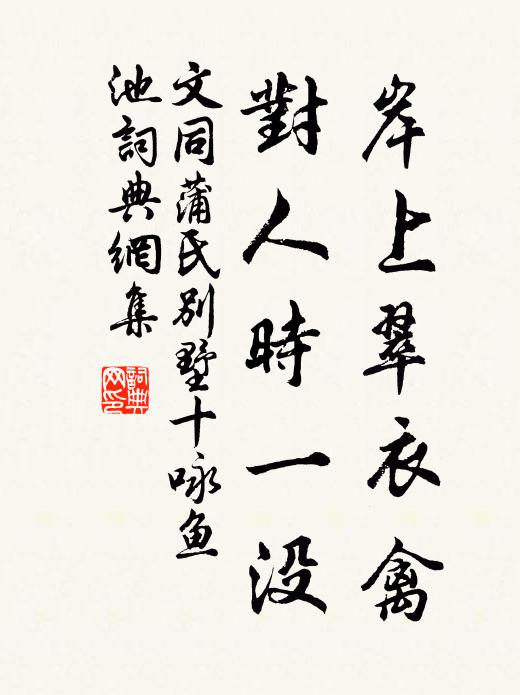 岸上翠衣禽
對人時一没
文同蒲氏別墅十咏鱼
池詞典網集
詞典
网印